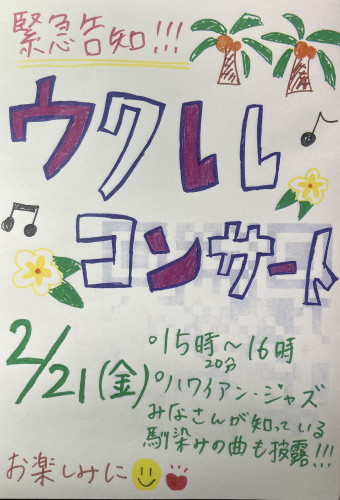 緊急告知!!!
ウクレレ
コンサート
2/21(金)
○15時～16時
20分
○ハワイアン・ジャズ
みなさんが知っている
馴染みの曲も披露!!!
お楽しみに